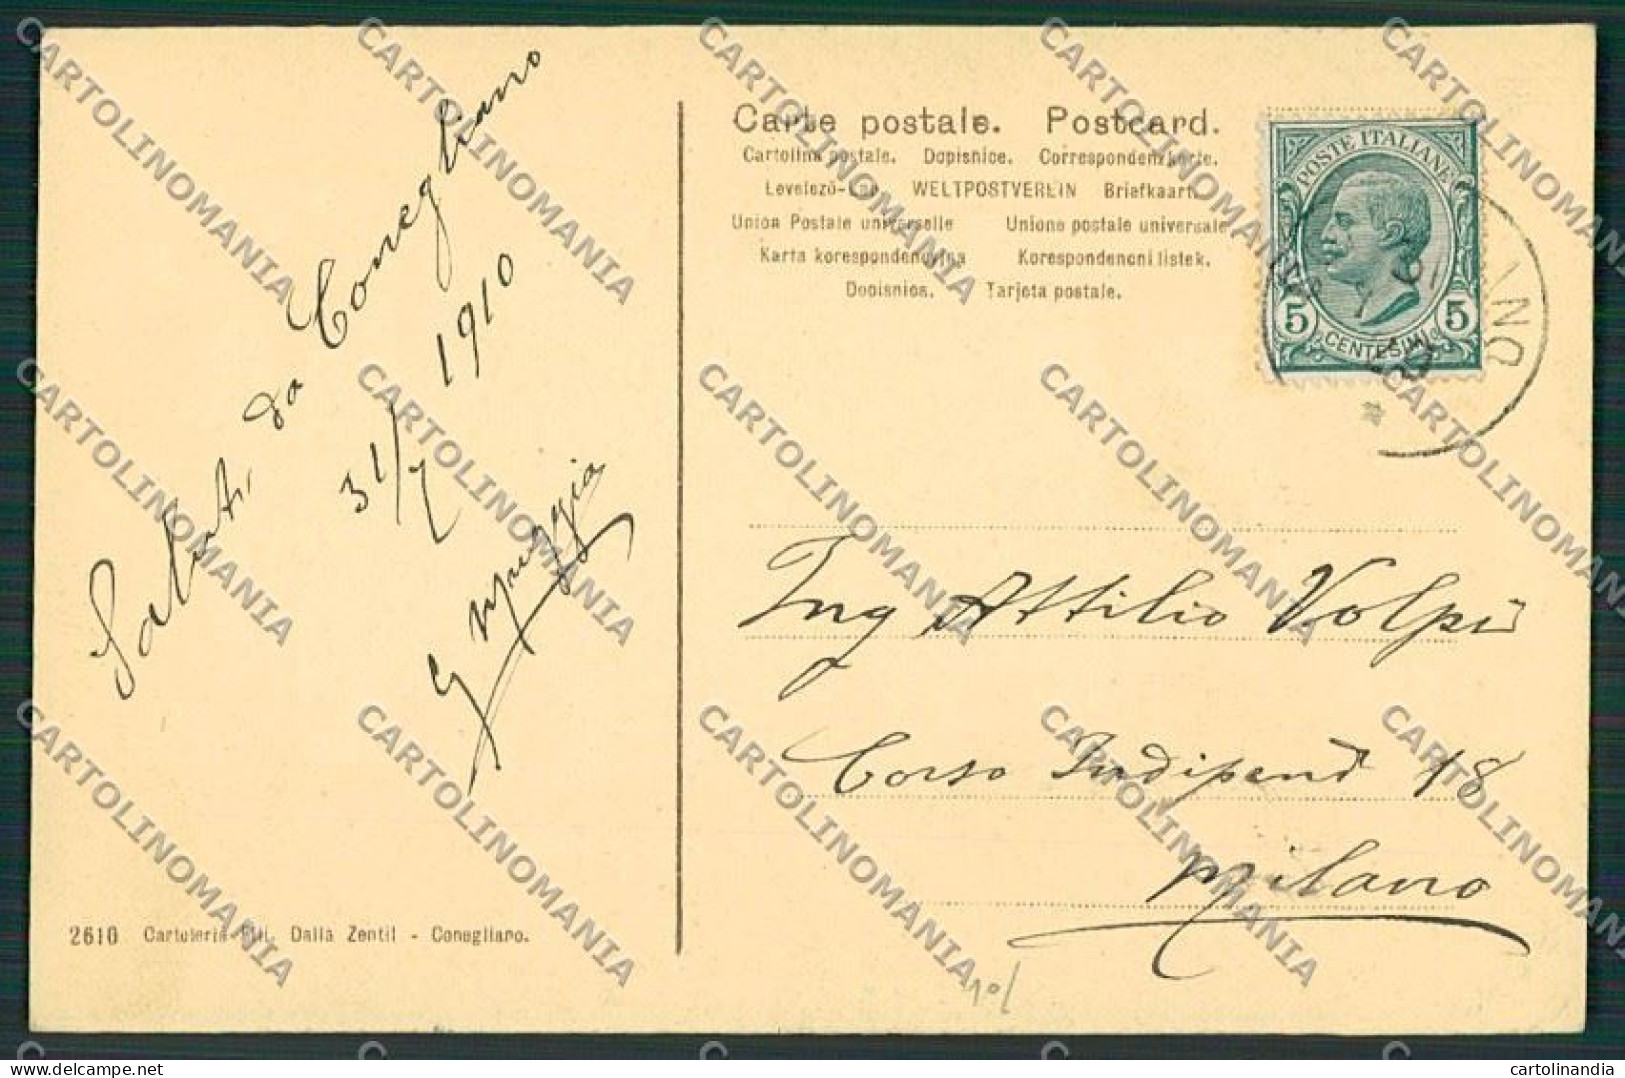 Saluti da Conegliano
31/7 1910
Carte postale. Postcard.
Cartolina postale. Dopisnice. Correspondenzkarte.
Levelező-Lap. WELTPOSTVEREIN Briefkaart.
Union Postale universelle Unione postale universale
Karta korespondencyjna Korespondencni listek.
Dopisnica. Tarjeta postale.
POSTE ITALIANE
5 CENTESIMI 5
Ing Attilio Volpi
Corso Indipend 18
Milano
2610 Cartoleria Flli. Dalla Zentil - Conegliano.
CARTOLINOMANIA
cartolinandia